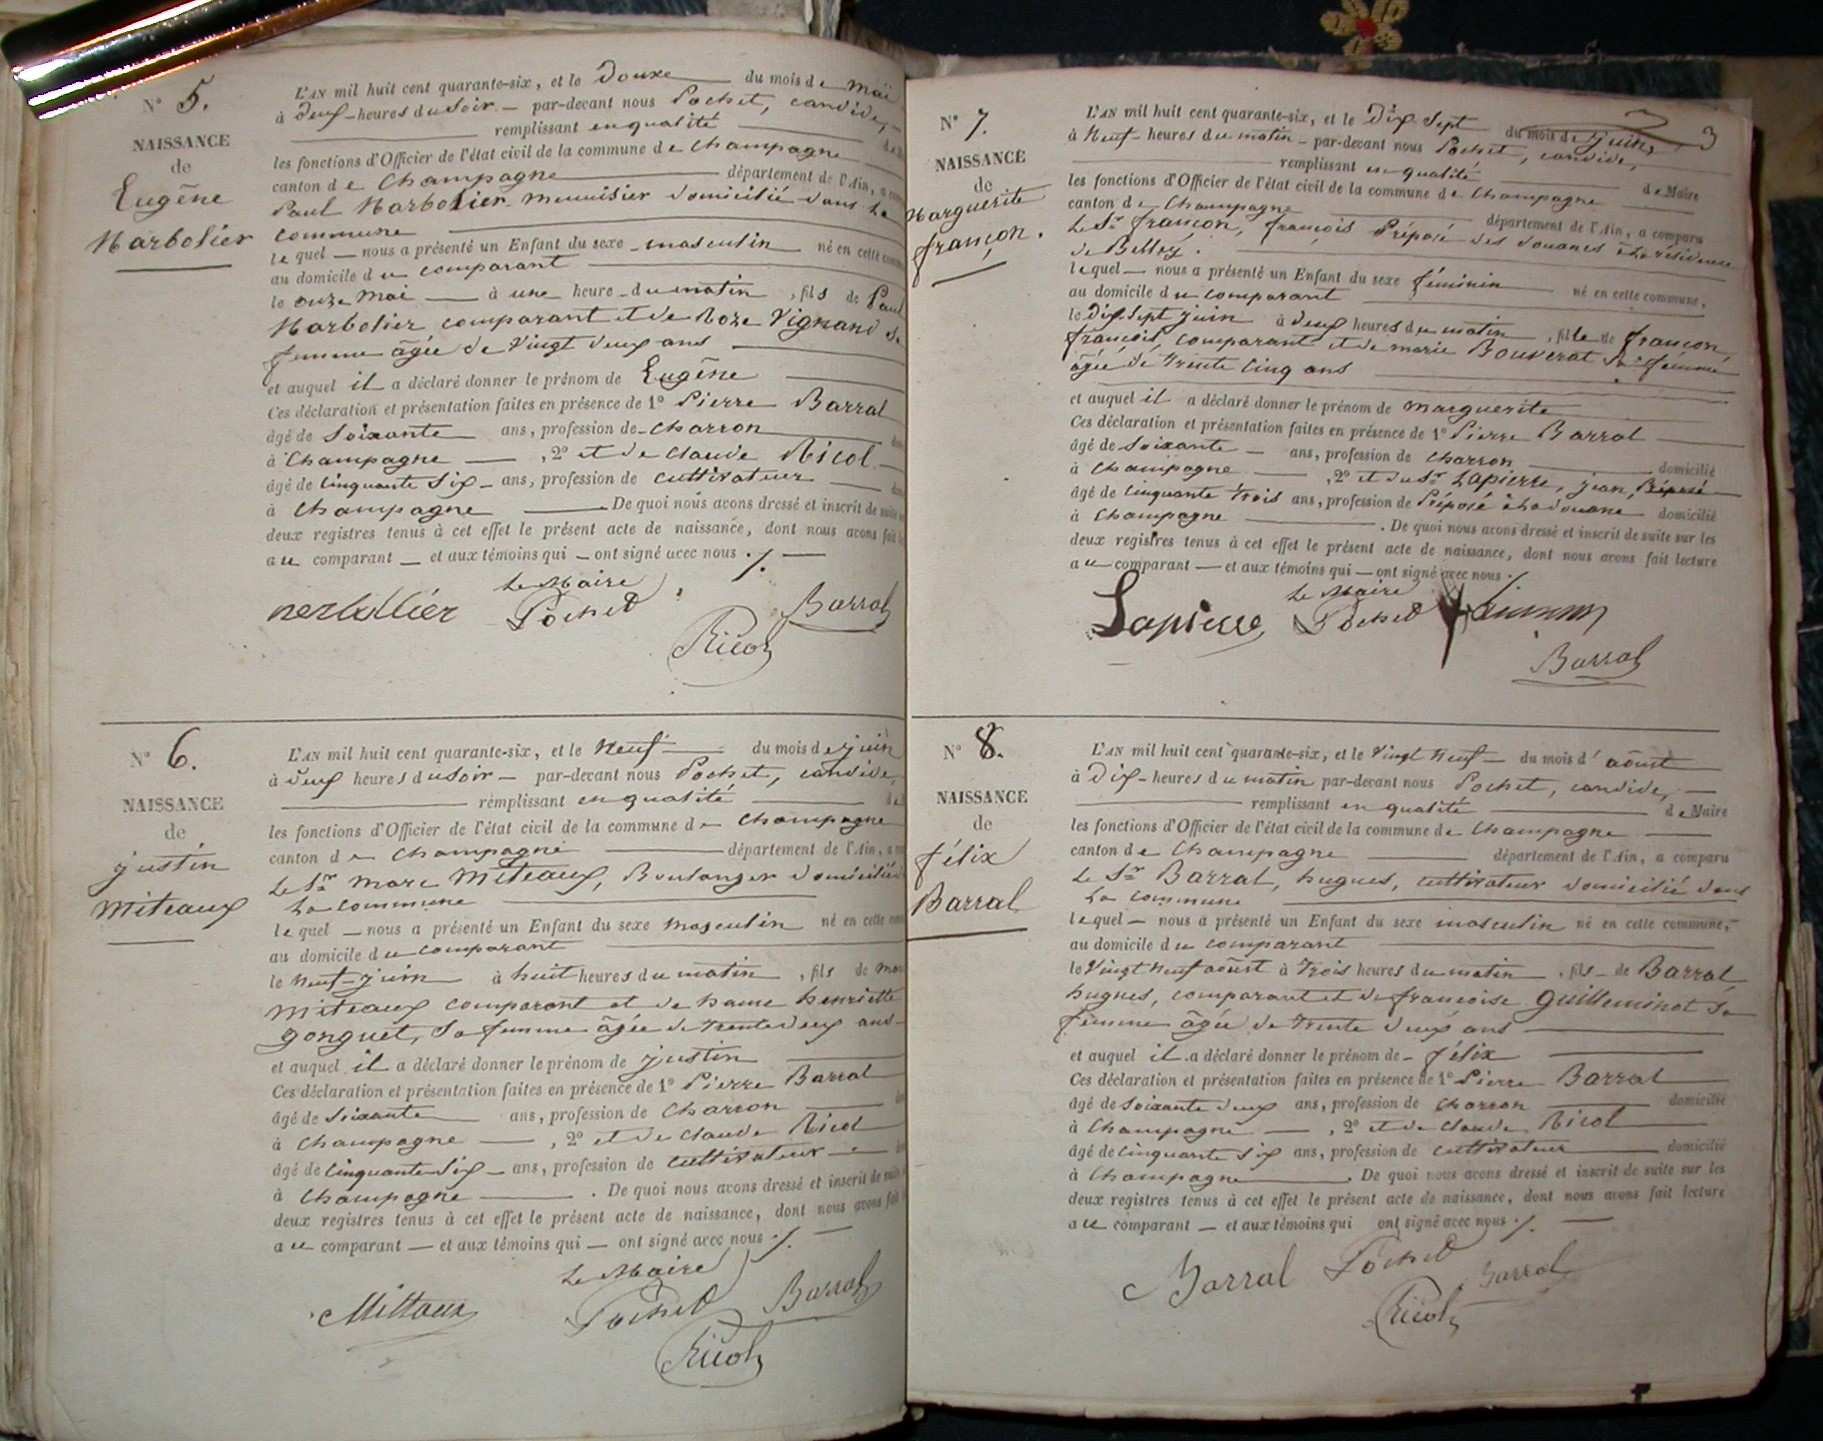 N° 5.
NAISSANCE
de
Eugēne
Narbolier
L'AN mil huit cent quarante-six, et le Douze du mois de Mai
à Deux heures du Soir par-devant nous Pochet, candide,
remplissant en qualité de
les fonctions d'Officier de l'état civil de la commune de Champagne
canton de Champagne département de l'Ain, a
Paul Narbolier Menuisier domicilié dans la
commune
lequel nous a présenté un Enfant du sexe masculin né en cette
au domicile du comparant
le onze Mai à une heure du matin, fils de Paul
Narbolier comparant et de Roze Vignand Sa
femme âgée de Vingt deux ans
et auquel il a déclaré donner le prénom de Eugēne
Ces déclaration et présentation faites en présence de 1° Pierre Barral
âgé de Soixante ans, profession de Charron
à Champagne, 2° et de Claude Ricol
âgé de Cinquante Six ans, profession de cultivateur
à Champagne. De quoi nous avons dressé et inscrit de suite
deux registres tenus à cet effet le présent acte de naissance, dont nous avons fait
au comparant et aux témoins qui ont signé avec nous ./.
Le Maire
nerbollier Pochet Barral
Ricol
N° 6.
NAISSANCE
de
justin
Miteaux
L'AN mil huit cent quarante-six, et le Neuf du mois de juin
à Deux heures du Soir par-devant nous Pochet, candide,
remplissant en qualité de
les fonctions d'Officier de l'état civil de la commune de Champagne
canton de Champagne département de l'Ain, a
Le Sr Marc Miteaux, Boulanger domicilié
La commune
lequel nous a présenté un Enfant du sexe masculin né en cette
au domicile du comparant
le neuf juin à huit heures du matin, fils de Marc
Miteaux comparant et de Dame henriette
gonguet, Sa femme âgée de trente deux ans
et auquel il a déclaré donner le prénom de justin
Ces déclaration et présentation faites en présence de 1° Pierre Barral
âgé de Soixante ans, profession de Charron
à Champagne, 2° et de Claude Ricol
âgé de Cinquante Six ans, profession de cultivateur
à Champagne. De quoi nous avons dressé et inscrit de suite
deux registres tenus à cet effet le présent acte de naissance, dont nous avons fait
au comparant et aux témoins qui ont signé avec nous ./.
Le Maire
Mittaux Pochet Barral
Ricol
3
N° 7.
NAISSANCE
de
Marguerite
françon.
L'AN mil huit cent quarante-six, et le Dix Sept du mois de juin,
à Neuf heures du matin par-devant nous Pochet, candide,
remplissant en qualité de Maire
les fonctions d'Officier de l'état civil de la commune de Champagne
canton de Champagne département de l'Ain, a comparu
Le Sr françon, françois Préposé des douanes à la résidence
de Belley.
lequel nous a présenté un Enfant du sexe féminin né en cette commune,
au domicile du comparant
le Dix Sept juin à deux heures du matin, fille de françon,
françois, comparant et de marie Bouverat Sa femme
âgée de trente Cinq ans
et auquel il a déclaré donner le prénom de marguerite
Ces déclaration et présentation faites en présence de 1° Pierre Barral
âgé de Soixante ans, profession de Charron domicilié
à Champagne, 2° et du Sr Lapierre, jean, Préposé
âgé de Cinquante trois ans, profession de Préposé à la douane domicilié
à Champagne. De quoi nous avons dressé et inscrit de suite sur les
deux registres tenus à cet effet le présent acte de naissance, dont nous avons fait lecture
au comparant et aux témoins qui ont signé avec nous ./.
Le Maire
Lapierre Pochet
Barral
N° 8.
NAISSANCE
de
félix
Barral
L'AN mil huit cent quarante-six, et le Vingt Neuf du mois d'août
à Dix heures du matin par-devant nous Pochet, candide,
remplissant en qualité de Maire
les fonctions d'Officier de l'état civil de la commune de Champagne
canton de Champagne département de l'Ain, a comparu
Le Sr Barral, hugues, cultivateur domicilié dans
La commune
lequel nous a présenté un Enfant du sexe masculin né en cette commune,
au domicile du comparant
le Vingt Neuf août à trois heures du matin, fils de Barral
hugues, comparant et de francoise Guilleminot Sa
femme âgée de trente deux ans
et auquel il a déclaré donner le prénom de félix
Ces déclaration et présentation faites en présence de 1° Pierre Barral
âgé de Soixante deux ans, profession de Charron domicilié
à Champagne, 2° et de Claude Ricol
âgé de Cinquante Six ans, profession de cultivateur domicilié
à Champagne. De quoi nous avons dressé et inscrit de suite sur les
deux registres tenus à cet effet le présent acte de naissance, dont nous avons fait lecture
au comparant et aux témoins qui ont signé avec nous ./.
Barral Pochet Barral
Ricol